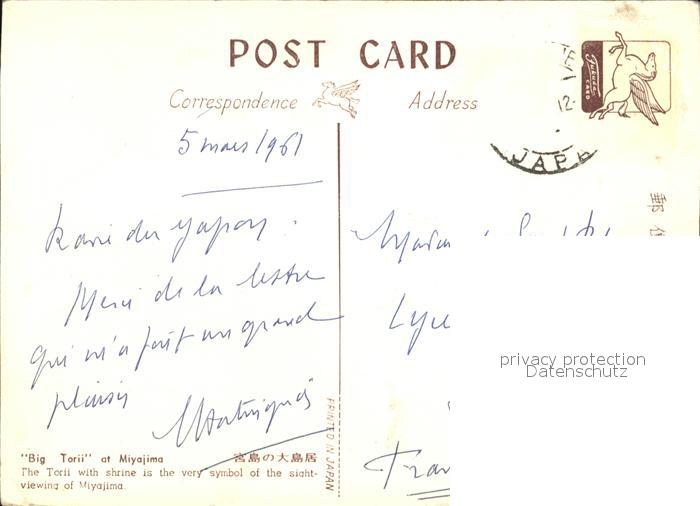 POST CARD
Correspondence
Address
Fukuda
CARD
12.
JAPA
郵
5 mars 1961
Ravie du Japon.
Merci de la lettre
qui m'a fait un grand
plaisir
Lyc
Fran
privacy protection
Datenschutz
PRINTED IN JAPAN
"Big Torii" at Miyajima 宮島の大鳥居
The Torii with shrine is the very symbol of the sight-
viewing of Miyajima.